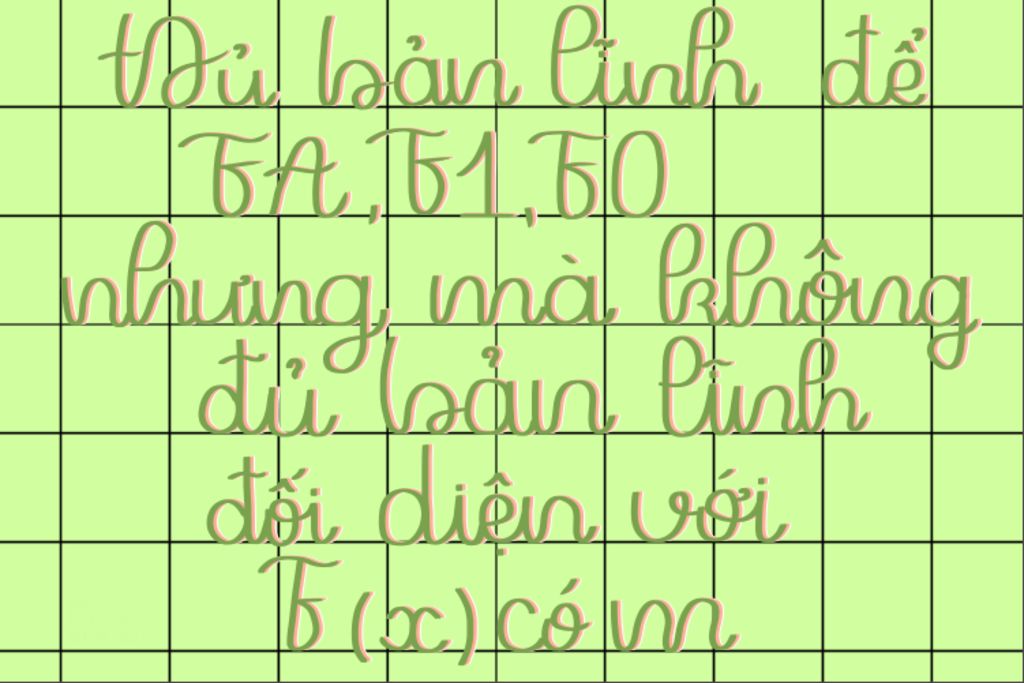 Đủ bản lĩnh để
FA, F1, F0
nhưng mà không
đủ bản lĩnh
đối diện với
F(x) có m